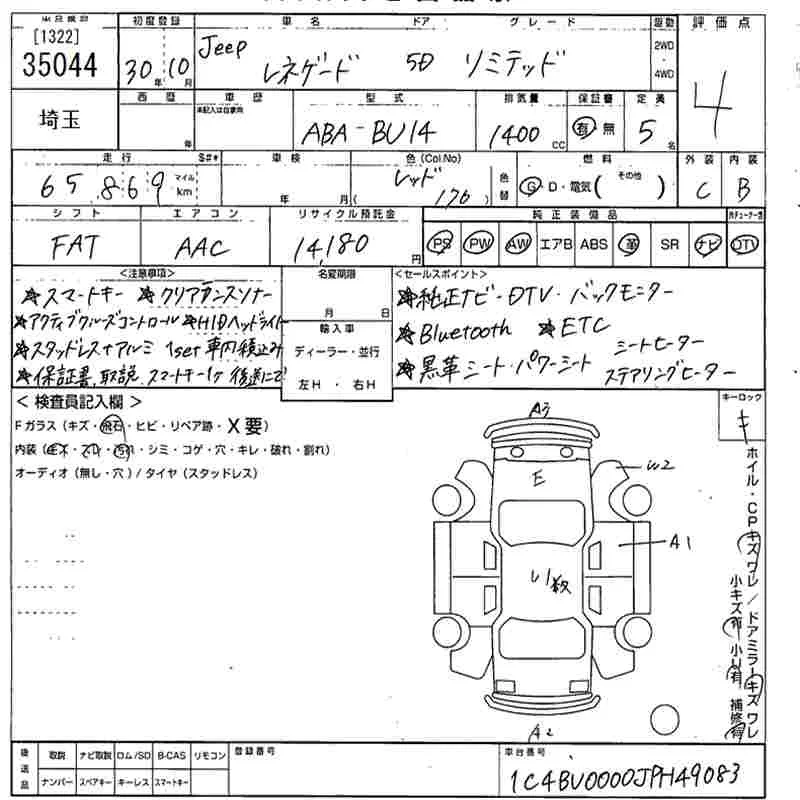 出品番号 初度登録 車名 ドア グレード 駆動 評価点
[1322]
35044
30年 10月
Jeep レネゲード 5D リミテッド
2WD・4WD
4
埼玉
西暦 車歴 型式 排気量 保証書 定員
未記入は自家用
年
ABA-BU14 1400cc 有 無 5名
走行 S#* 車検 色(Col.No) 燃料 外装 内装
65,869 マイル km
年 月
レッド (170)
色替
G・D・電気( その他 )
C B
シフト エアコン リサイクル預託金 純正装備品
FAT AAC 14,180円
PS PW AW エアB ABS 革 SR ナビ DTV
<注意事項> 名変期限 <セールスポイント>
★スマートキー ★クリアランスソナー
★アクティブクルーズコントロール ★HIDヘッドライト
★スタッドレス+アルミ 1set 車内積込み
★保証書、取説、スマートキー1ケ 後送にて
月 日
輸入車
ディーラー・並行
左H ・ 右H
★純正ナビ・DTV・バックモニター
★Bluetooth ★ETC
★黒革シート・パワーシート シートヒーター
ステアリングヒーター
< 検査員記入欄 >
Fガラス(キズ・飛石・ヒビ・リペア跡・X要)
内装(キズ・スレ・汚れ・シミ・コゲ・穴・キレ・破れ・割れ)
オーディオ(無し・穴)/タイヤ(スタッドレス)
キーロック
キ
A3
E
W2
A1
A2
ホイル・CPキズワレ/ドアミラーキズワレ
小キズ有 小U有 補修有
後送品
取説 ナビ取説 ロム/SD B-CAS リモコン
ナンバー スペアキー キーレス スマートキー
登録番号
車台番号
1C4BU0000JPH49083